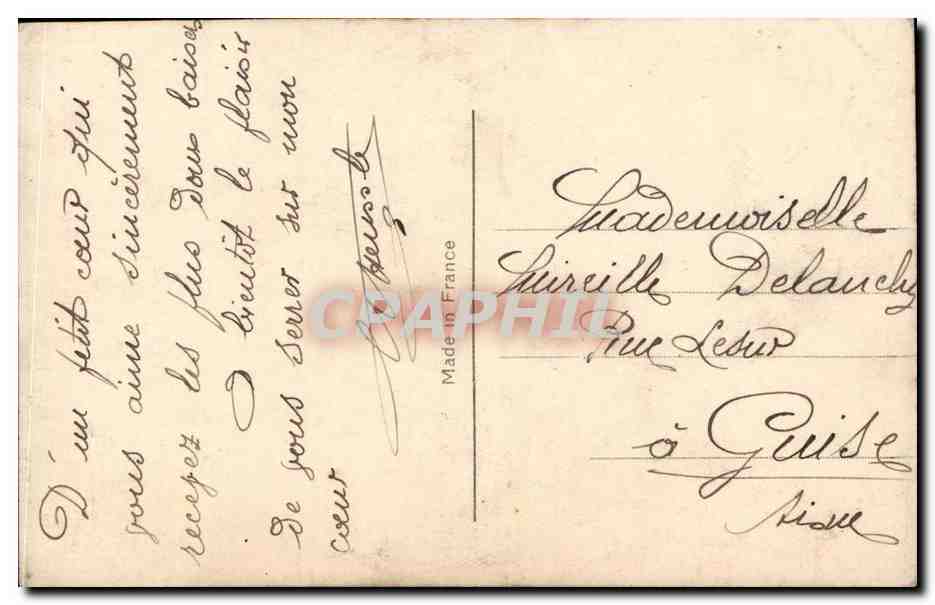 D'un petit cœur qui
vous aime sincèrement
recevez les plus doux baisers
A bientôt le plaisir
de vous serrer sur mon
cœur
Made in France
CPAPHIL
Mademoiselle
Mireille Delanchy
Rue Lesur
à Guise
Aisne